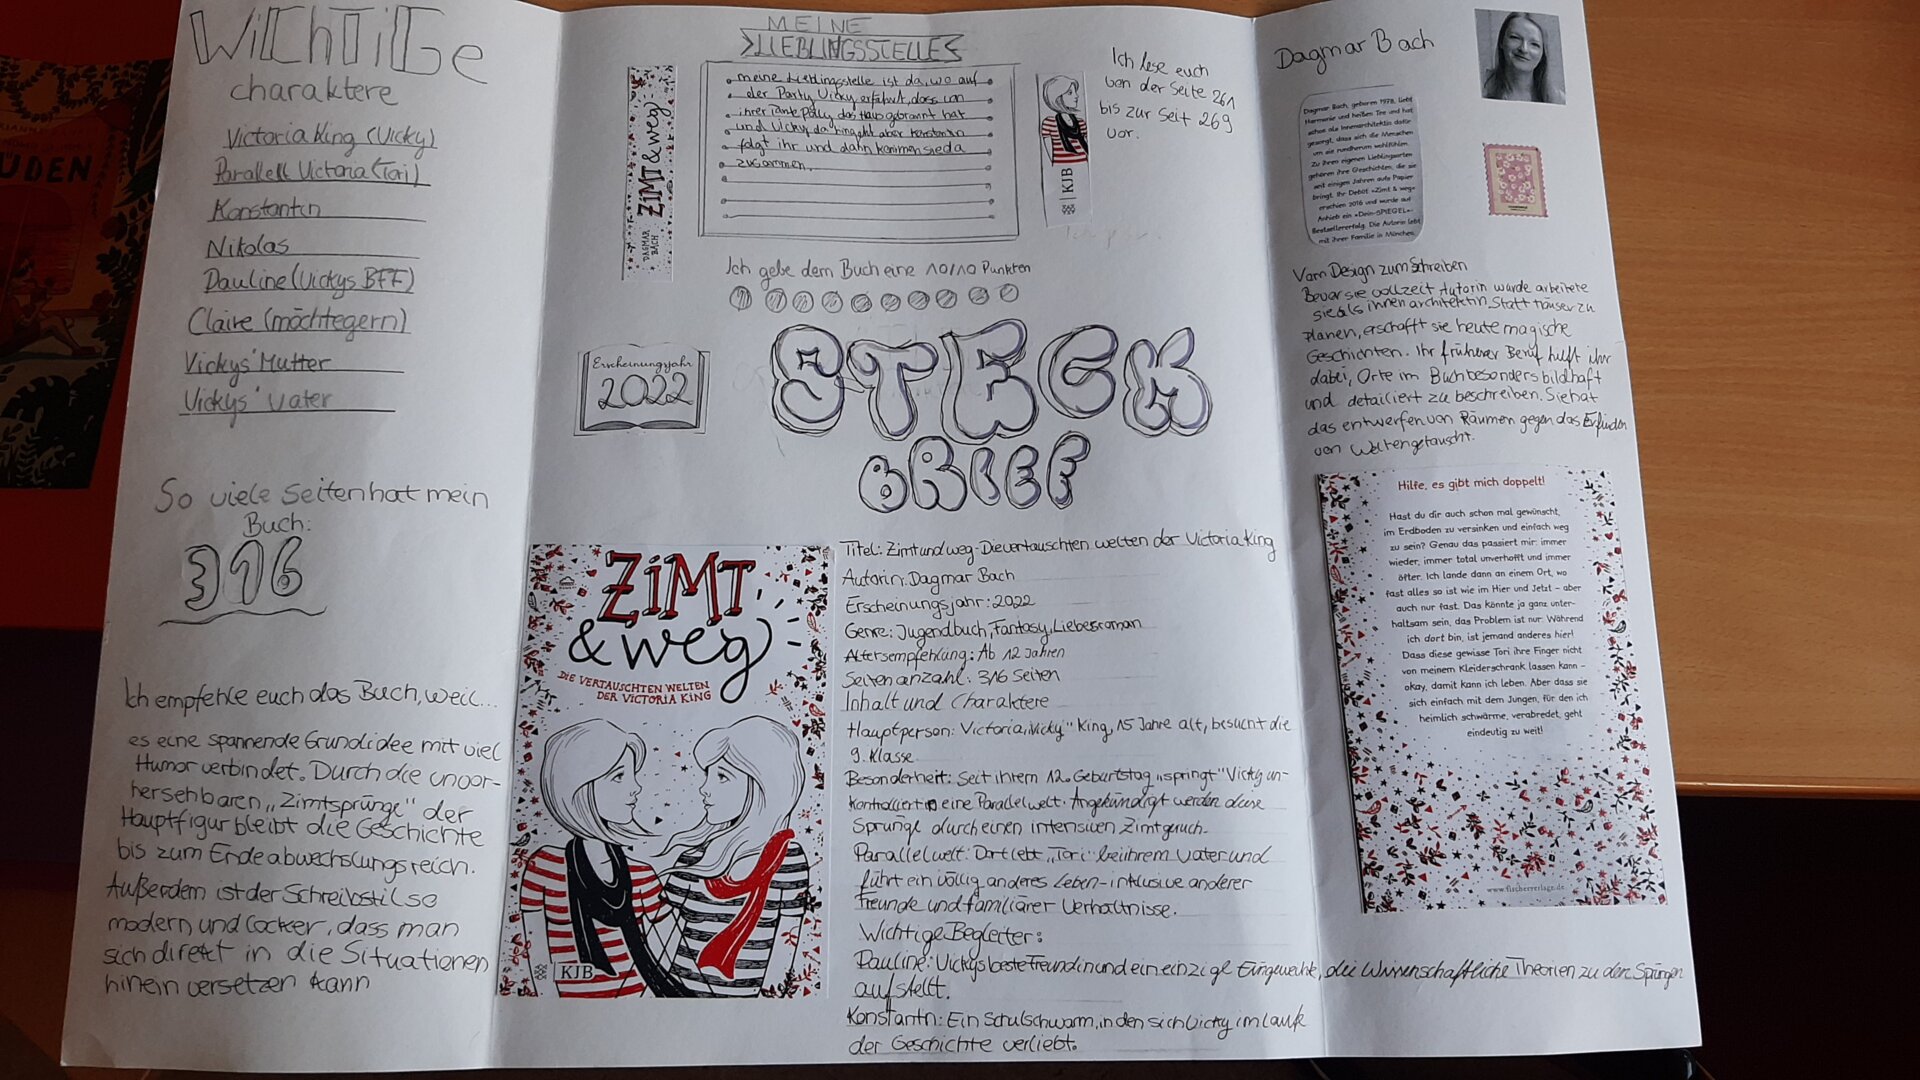 WiCHTiGe
charaktere
Victoria King (Vicky)
Parallell Victoria (Tori)
Konstantin
Nikolas
Pauline (Vickys BFF)
Claire (möchtegern)
Vickys' Mutter
Vickys' vater
So viele Seiten hat mein
Buch:
316
Ich empfehle euch das Buch, weil...
es eine spannende Grundidee mit viel
Humor verbindet. Durch die unvor-
hersehbaren „Zimtsprünge" der
Hauptfigur bleibt die Geschichte
bis zum Ende abwechslungsreich.
Außerdem ist der Schreibstil so
modern und locker, dass man
sich direkt in die Situationen
hinein versetzen kann
MEINE
LIEBLINGSSTELLE
meine Lieblingsstelle ist da, wo auf
der Party Vicky erfährt, dass von
ihrer Tante Polly das Haus gebrannt hat
und Vicky da hingeht aber Konstantin
folgt ihr und dahn kommen sie da
zusammen.
ZiMT & weg
DAGMAR
BACH
KJB
Ich lese euch
von der Seite 261
bis zur Seit 269
vor.
Ich gebe dem Buch eine 10/10 Punkten
Erscheinungsjahr
2022
STECK
BRIEF
ZiMT
& weg
DIE VERTAUSCHTEN WELTEN
DER VICTORIA KING
KJB
Titel: Zimt und weg-Die vertauschten welten der Victoria King
Autorin: Dagmar Bach
Erscheinungsjahr: 2022
Genre: Jugendbuch, Fantasy, Liebesroman
Altersempfehlung: Ab 12 Jahren
Seitenanzahl: 316 Seiten
Inhalt und Charaktere
Hauptperson: Victoria „Vicky" King, 15 Jahre alt, besucht die
9. Klasse
Besonderheit: Seit ihrem 12. Geburtstag „springt" Vicky un-
kontrolliert in eine Parallelwelt. Angekündigt werden diese
Sprünge durch einen intensiven Zimtgeruch.
Parallelwelt: Dort lebt „Tori" bei ihrem Vater und
führt ein völlig anderes Leben-inklusive anderer
Freunde und familiärer Verhältnisse.
Wichtige Begleiter:
Pauline: Vickys beste Freundin und ein einzige Eingeweihte, die Wissenschaftliche Theorien zu den Sprüngen
aufstellt.
Konstantn: Ein Schulschwarm, in den sich Vicky im laufe
der Geschichte verliebt.
Dagmar Bach
Dagmar Bach, geboren 1978, liebt
Harmonie und heißen Tee und hat
schon als Innenarchitektin dafür
gesorgt, dass sich die Menschen
um sie rundherum wohlfühlen.
Zu ihren eigenen Lieblingsorten
gehören ihre Geschichten, die sie
seit einigen Jahren aufs Papier
bringt. Ihr Debüt »Zimt & weg«
erschien 2016 und wurde auf
Anhieb ein »Dein-SPIEGEL«-
Bestsellererfolg. Die Autorin lebt
mit ihrer Familie in München.
Vom Design zum Schreiben
Bevor sie vollzeit Autorin wurde arbeitete
sie als innenarchitektin. Statt Häuser zu
planen, erschafft sie heute magische
Geschichten. Ihr früherer Beruf hilft ihr
dabei, Orte im Buch besonders bildhaft
und detailiert zu beschreiben. Sie hat
das entwerfen von Räumen gegen das Erfinden
von Welten getauscht.
Hilfe, es gibt mich doppelt!
Hast du dir auch schon mal gewünscht,
im Erdboden zu versinken und einfach weg
zu sein? Genau das passiert mir: immer
wieder, immer total unverhofft und immer
öfter. Ich lande dann an einem Ort, wo
fast alles so ist wie im Hier und Jetzt – aber
auch nur fast. Das könnte ja ganz unter-
haltsam sein, das Problem ist nur: Während
ich dort bin, ist jemand anderes hier!
Dass diese gewisse Tori ihre Finger nicht
von meinem Kleiderschrank lassen kann –
okay, damit kann ich leben. Aber dass sie
sich einfach mit dem Jungen, für den ich
heimlich schwärme, verabredet, geht
eindeutig zu weit!
www.fischerverlage.de